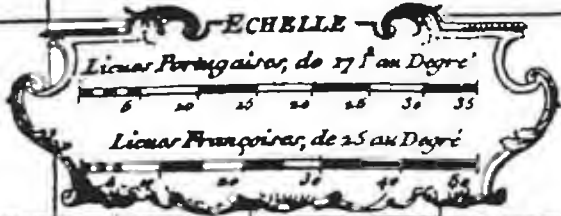 ECHELLE
Lieues Portugaises, de 17 ½ au Degré
5 10 15 20 25 30 35
Lieues Françoises, de 25 au Degré
20 30 40 50